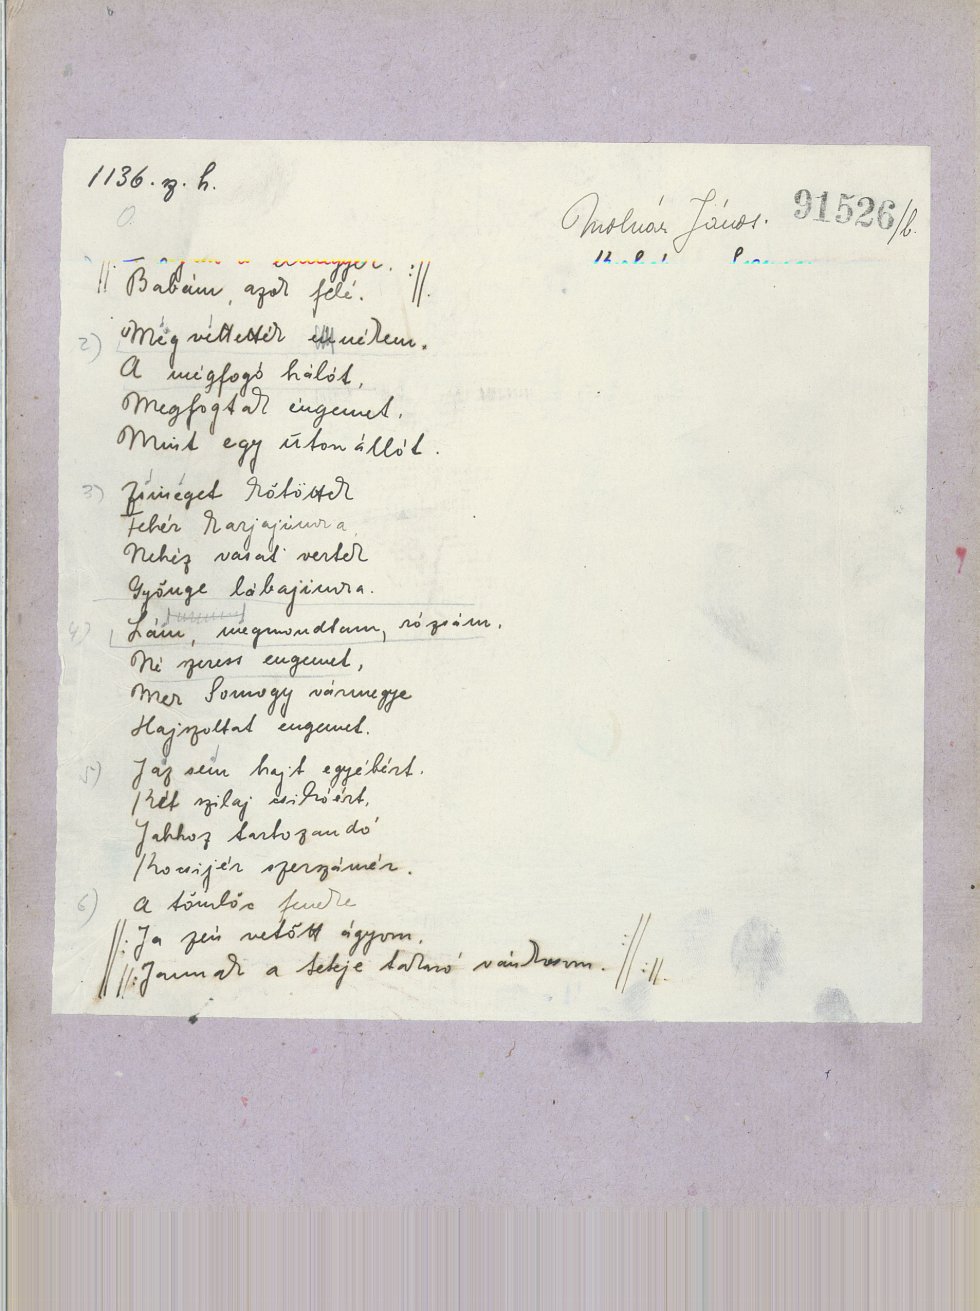 1136. sz. h.
Molnár János. 91526/b.
Babám, azok felé. :||.
2) Még vettették elnékem.
A mégfogó hálót,
Megfogtak éngemet,
Mint egy útonállót.
3) Zsineget kötöttek
Fehér karjajimra,
Nehéz vasat vertek
Gyönge lábajimra.
4) Lám, megmondtam, rózsám,
Né szeress engemet,
Mer Somogy vármegye
Hajszoltat engemet.
5) Jaz sem hajt egyébért.
Két szilaj csikóért,
Jahhoz tartozandó
Kocsijér szerszámér.
6) A tömlöc feneke
||: Ja zén vetött ágyom,
||: Jannak a teteje takaró vánkosom. :||